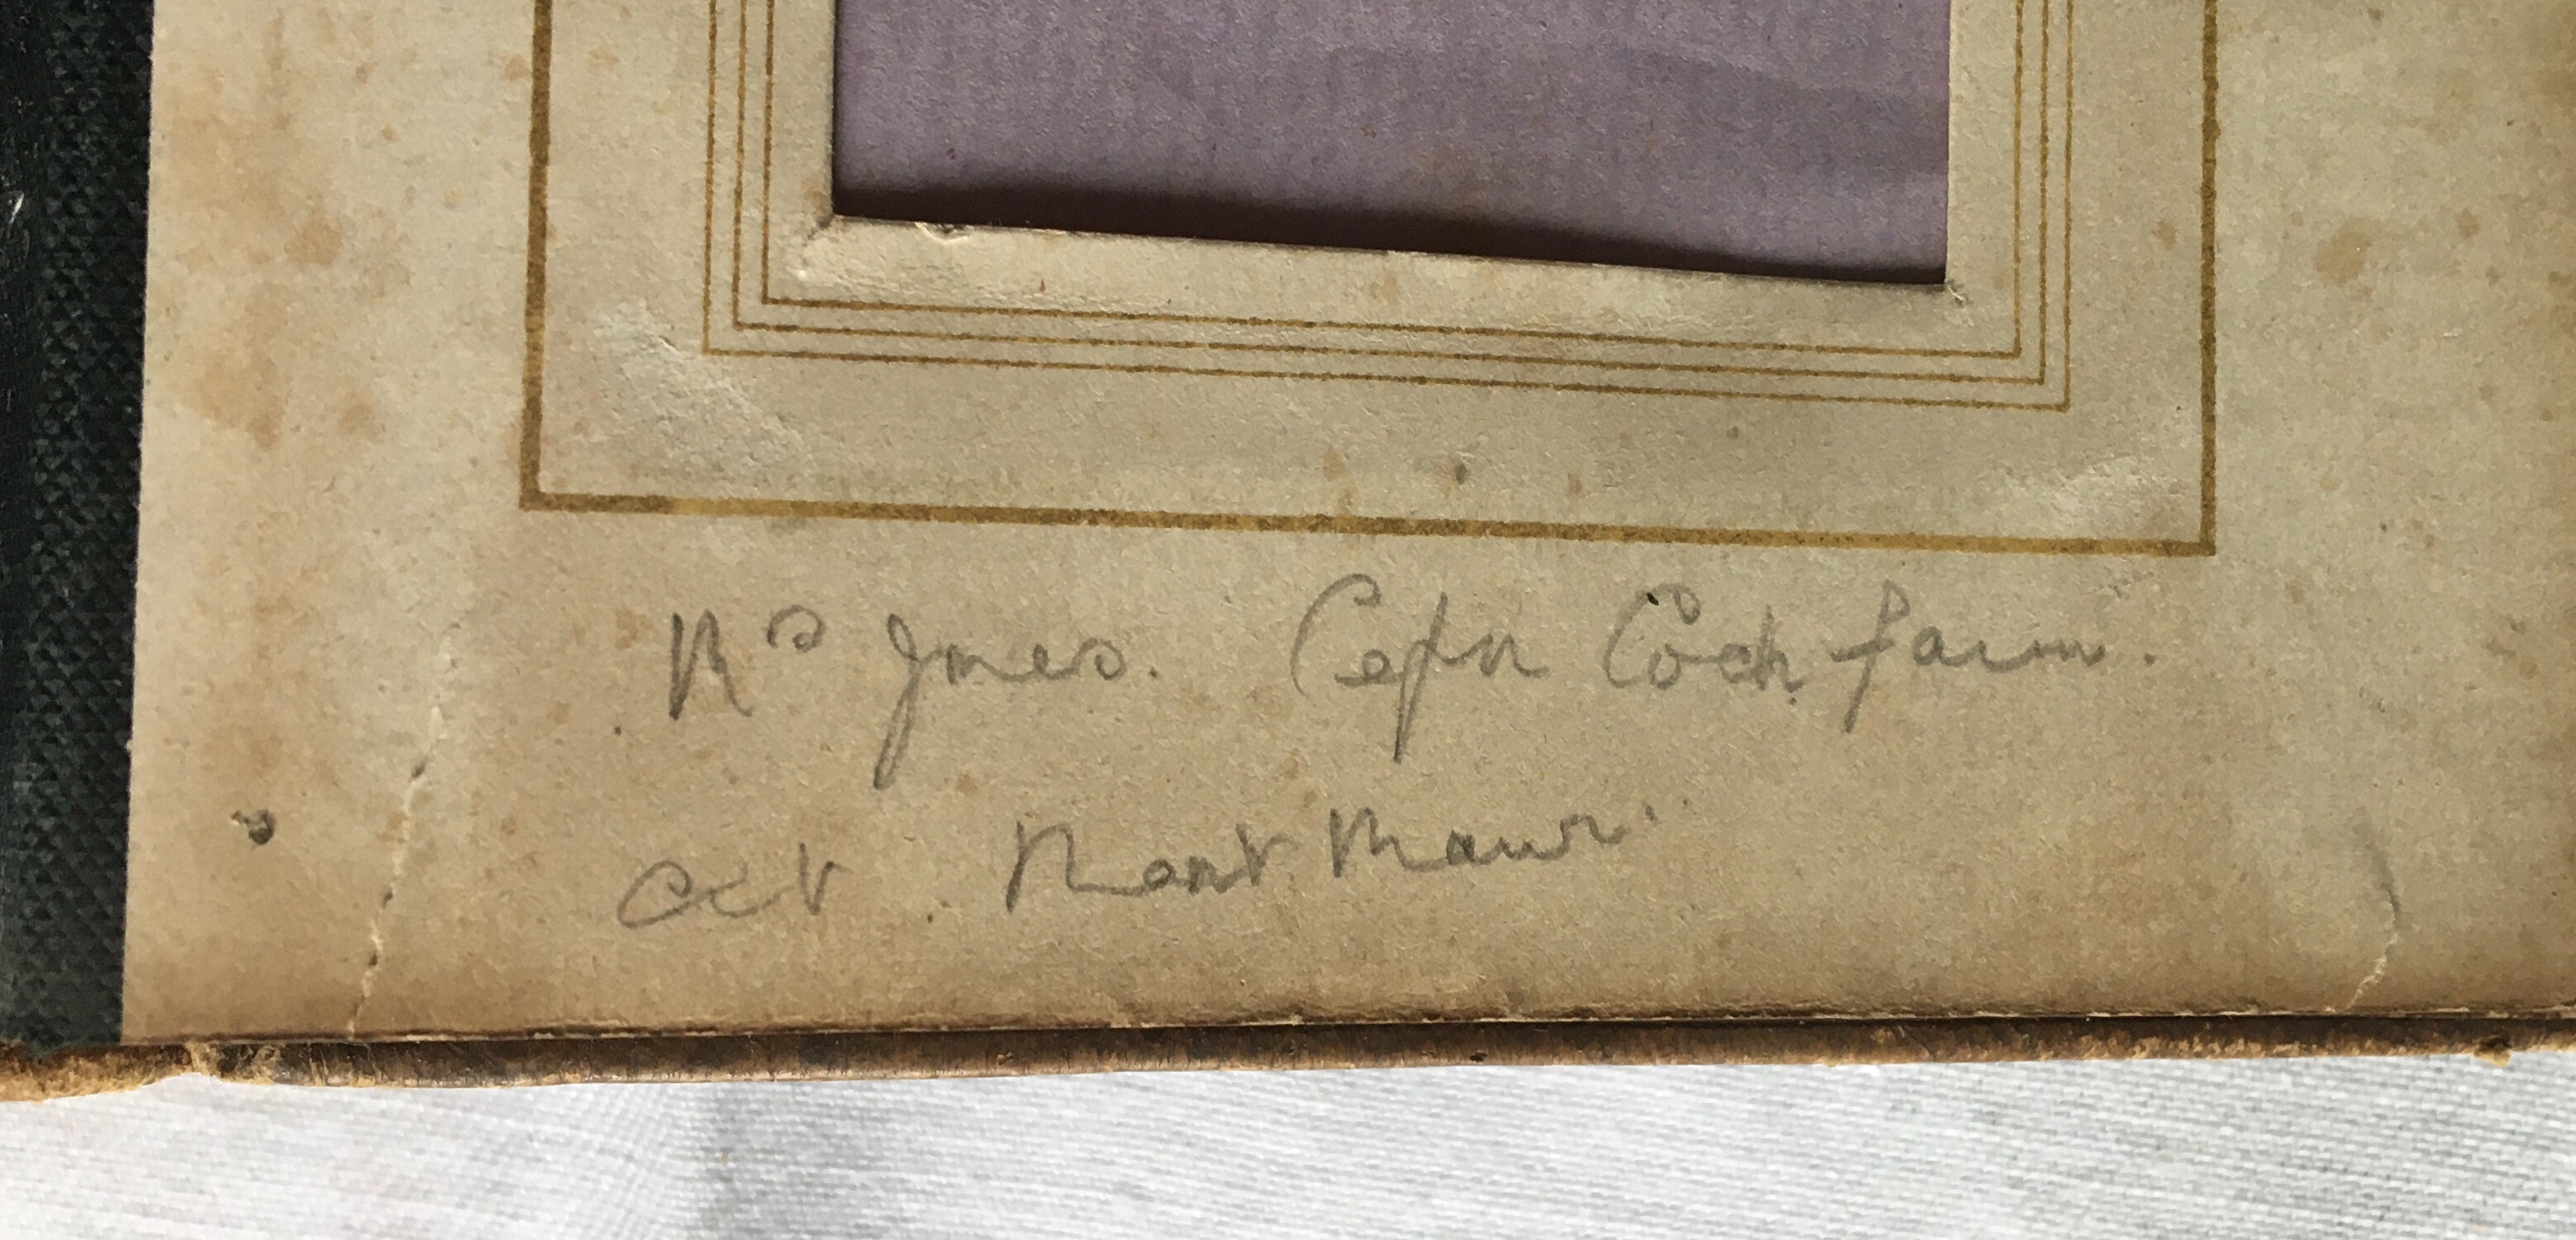 Mrs Jones. Cefn Coch farm.
at Nant Mawr.